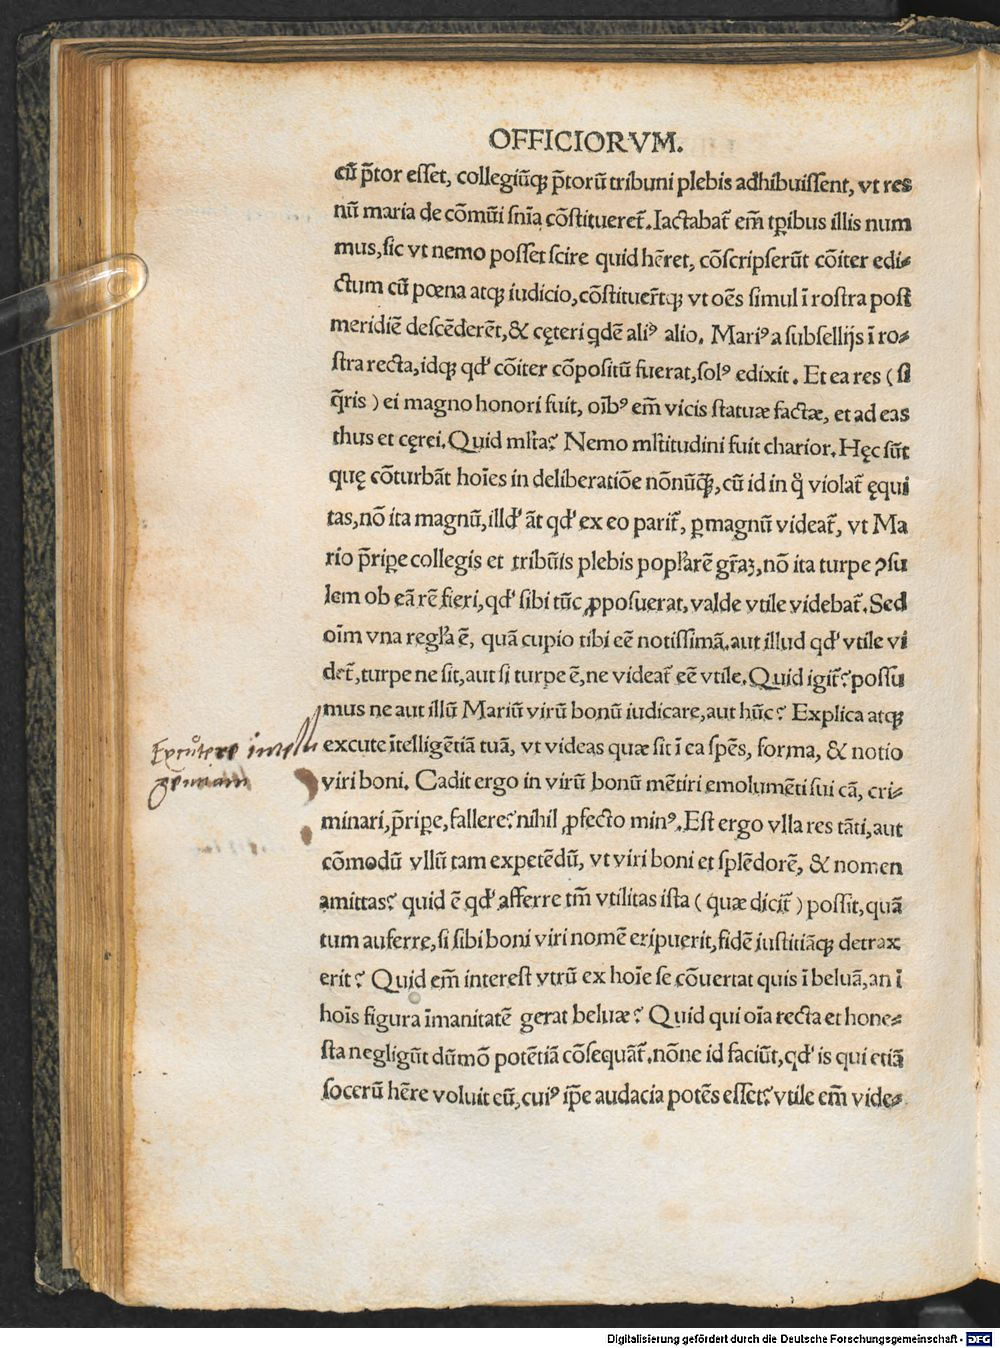 OFFICIORVM.
cū p̃tor esset, collegiūq; p̃torū tribuni plebis adhibuissent, vt res
nū maria de cōmūi snĩa cōstitueret̃. Iactabat̃ em̃ tp̱ibus illis num
mus, sic vt nemo posset scire quid hēret, cōscripserūt cōiter edi⸗
ctum cū pœna atq; iudicio, cōstituer̃tq; vt oēs simul ĩ rostra post
meridiē descēderēt, & cęteri qdē aliꝰ alio. Mariꝰ a subsellijs ĩ ro⸗
stra recta, idq; qd' cōiter cōpositū fuerat, solꝰ edixit. Et ea res (si
q̃ris) ei magno honori fuit, oĩbꝰ em̃ vicis statuæ factæ, et ad eas
thus et cęrei. Quid ml̃ta? Nemo ml̃titudini fuit charior. Hęc sūt
quę cōturbāt hoĩes in deliberatiōe nōnūq̃, cū id in q̊ violat̃ ęqui
tas, nō ita magnū, illd' āt qd' ex eo parit̃, ꝑmagnū videat̃, vt Ma
rio p̃riꝑe collegis et tribūis plebis popl'arē gr̃aꝫ, nō ita turpe ꝯsu
lem ob eā rē fieri, qd' sibi tūc ꝓposuerat, valde vtile videbat̃. Sed
oĩm vna regl'a ē, quā cupio tibi eē notissimā. aut illud qd' vtile vi
det̃, turpe ne sit, aut si turpe ē, ne videat̃ eē vtile. Quid igit̃? possu
mus ne aut illū Mariū virū bonū iudicare, aut hūc? Explica atq;
excute ĩtelligētiā tuā, vt videas quæ sit ĩ ea spēs, forma, & notio
viri boni. Cadit ergo in virū bonū mētiri emolumēti sui cā, cri⸗
minari, p̃riꝑe, fallere? nihil ꝓfecto minꝰ. Est ergo vlla res tāti, aut
cōmodū vllū tam expetēdū, vt viri boni et splēdorē, & nomen
amittas? quid ē qd' afferre tm̃ vtilitas ista (quæ dicit̃) possit, quā
tum auferre, si sibi boni viri nomē eripuerit, fidē iustitiāq; detrax
erit? Quid em̃ interest vtrū ex hoĩe se cōuertat quis ĩ beluā, an ĩ
hoĩs figura ĩmanitatē gerat beluæ? Quid qui oĩa recta et hone⸗
sta negligūt dūmō potētiā cōsequāt̃. nōne id faciūt, qd' is qui etiā
socerū hēre voluit eū, cuiꝰ ip̃e audacia potēs esset? vtile em̃ vide⸗
Excutere intelli
gentiam
Digitalisierung gefördert durch die Deutsche Forschungsgemeinschaft - DFG